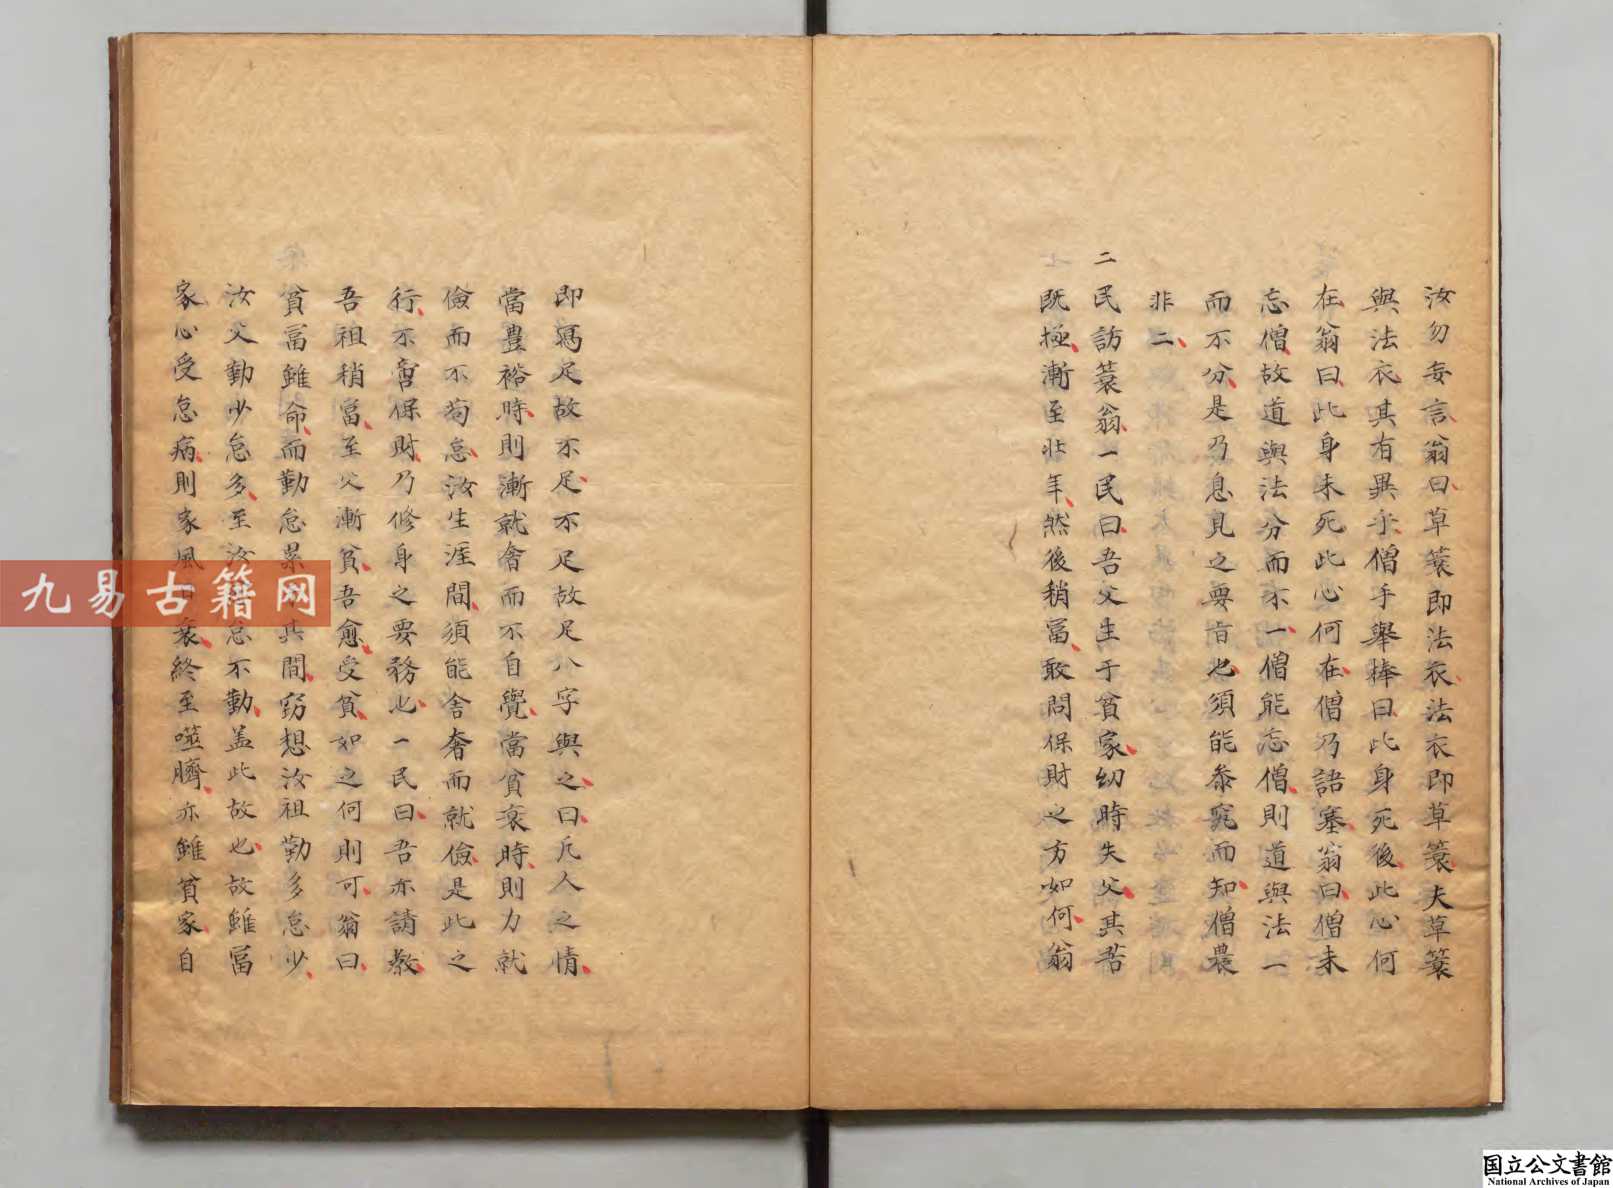 汝勿妄言翁曰草簑即法衣法衣即草簑夫草簑
與法衣其有異乎僧手舉棒曰此身死後此心何
在翁曰此身未死此心何在僧乃語塞翁曰僧未
忘僧故道與法分而不一僧能忘僧則道與法一
而不分是乃息見之要旨也須能參究而知僧農
非二
二民訪簑翁一民曰吾父生于貧家幼時失父其若
既極漸至壯年然後稍冨敢問保財之方如何翁
即寫足故不足不足故足八字與之曰凡人之情
當豊裕時則漸就奢而不自覺當貧衰時則力就
儉而不苟怠汝生涯間須能舍奢而就儉是此之
行不啻保財乃修身之要務也一民曰吾亦請教
吾祖稍富至父漸貧吾愈受貧如之何則可翁曰
貧冨雖命而勤怠累其間窃想汝祖勤多怠少
汝父勤少怠多至汝怠不勤盖此故也故雖冨
家心受怠病則家風衰終至噬臍亦雖貧家自
九易古籍网
国立公文書館
National Archives of Japan